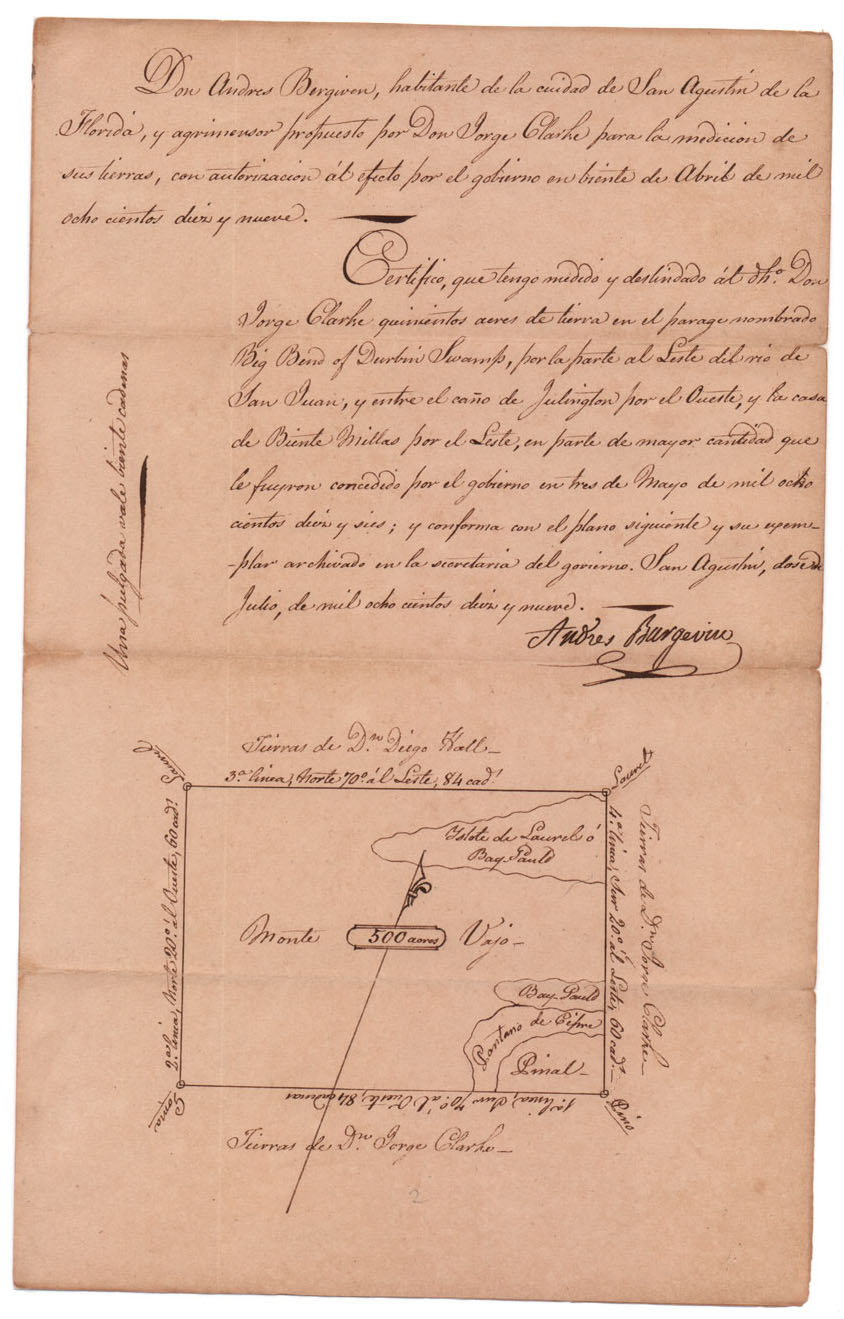 Don Andres Bergiven, habitante de la cuidad de San Agustín de la
Florida, y agrimensor propuesto por Don Jorge Clarke para la medicion de
sus tierras, con autorizacion ál efecto por el gobierno en biente de Abril de mil
ocho cientos diez y nueve.
Certifico, que tengo medido y deslindado ál dhº. Don
Jorge Clarke quinientos acres de tierra en el parage nombrado
Big Bend of Durbin Swamp, por la parte al Leste del rio de
San Juan, y entre el caño de Julington por el Oueste, y la casa
de Biente Millas por el Leste, en parte de mayor cantidad que
le fuyron concedido por el gobierno en tres de Mayo de mil ocho
cientos diez y sies; y conforma con el plano siguiente y su exem-
-plar archivado en la secretaria del govierno. San Agustin, dose de
Julio, de mil ocho cientos diez y nueve.
Andres Burgevin
Una pulgada vale biente cadenas
Tierras de Dn. Diego Hall
Laurel
3ª linea, Norte 70º ál Leste, 84 cads.
Laurel
Islote de Laurel ó
Bay Gauld
2ª linea, Norte 20º ál Oueste, 60 cads.
4ª linea, Sur 20º ál Leste, 60 cads.
Tierras de Dn. Jorre Clarke
Monte 500 acres Vajo
Bay Gauld
Pantano de Cipre
Pinal
Loma
1ª linea, Sur 70º ál Oueste, 84 cadenas
Pino
Tierras de Dn. Jorge Clarke
2